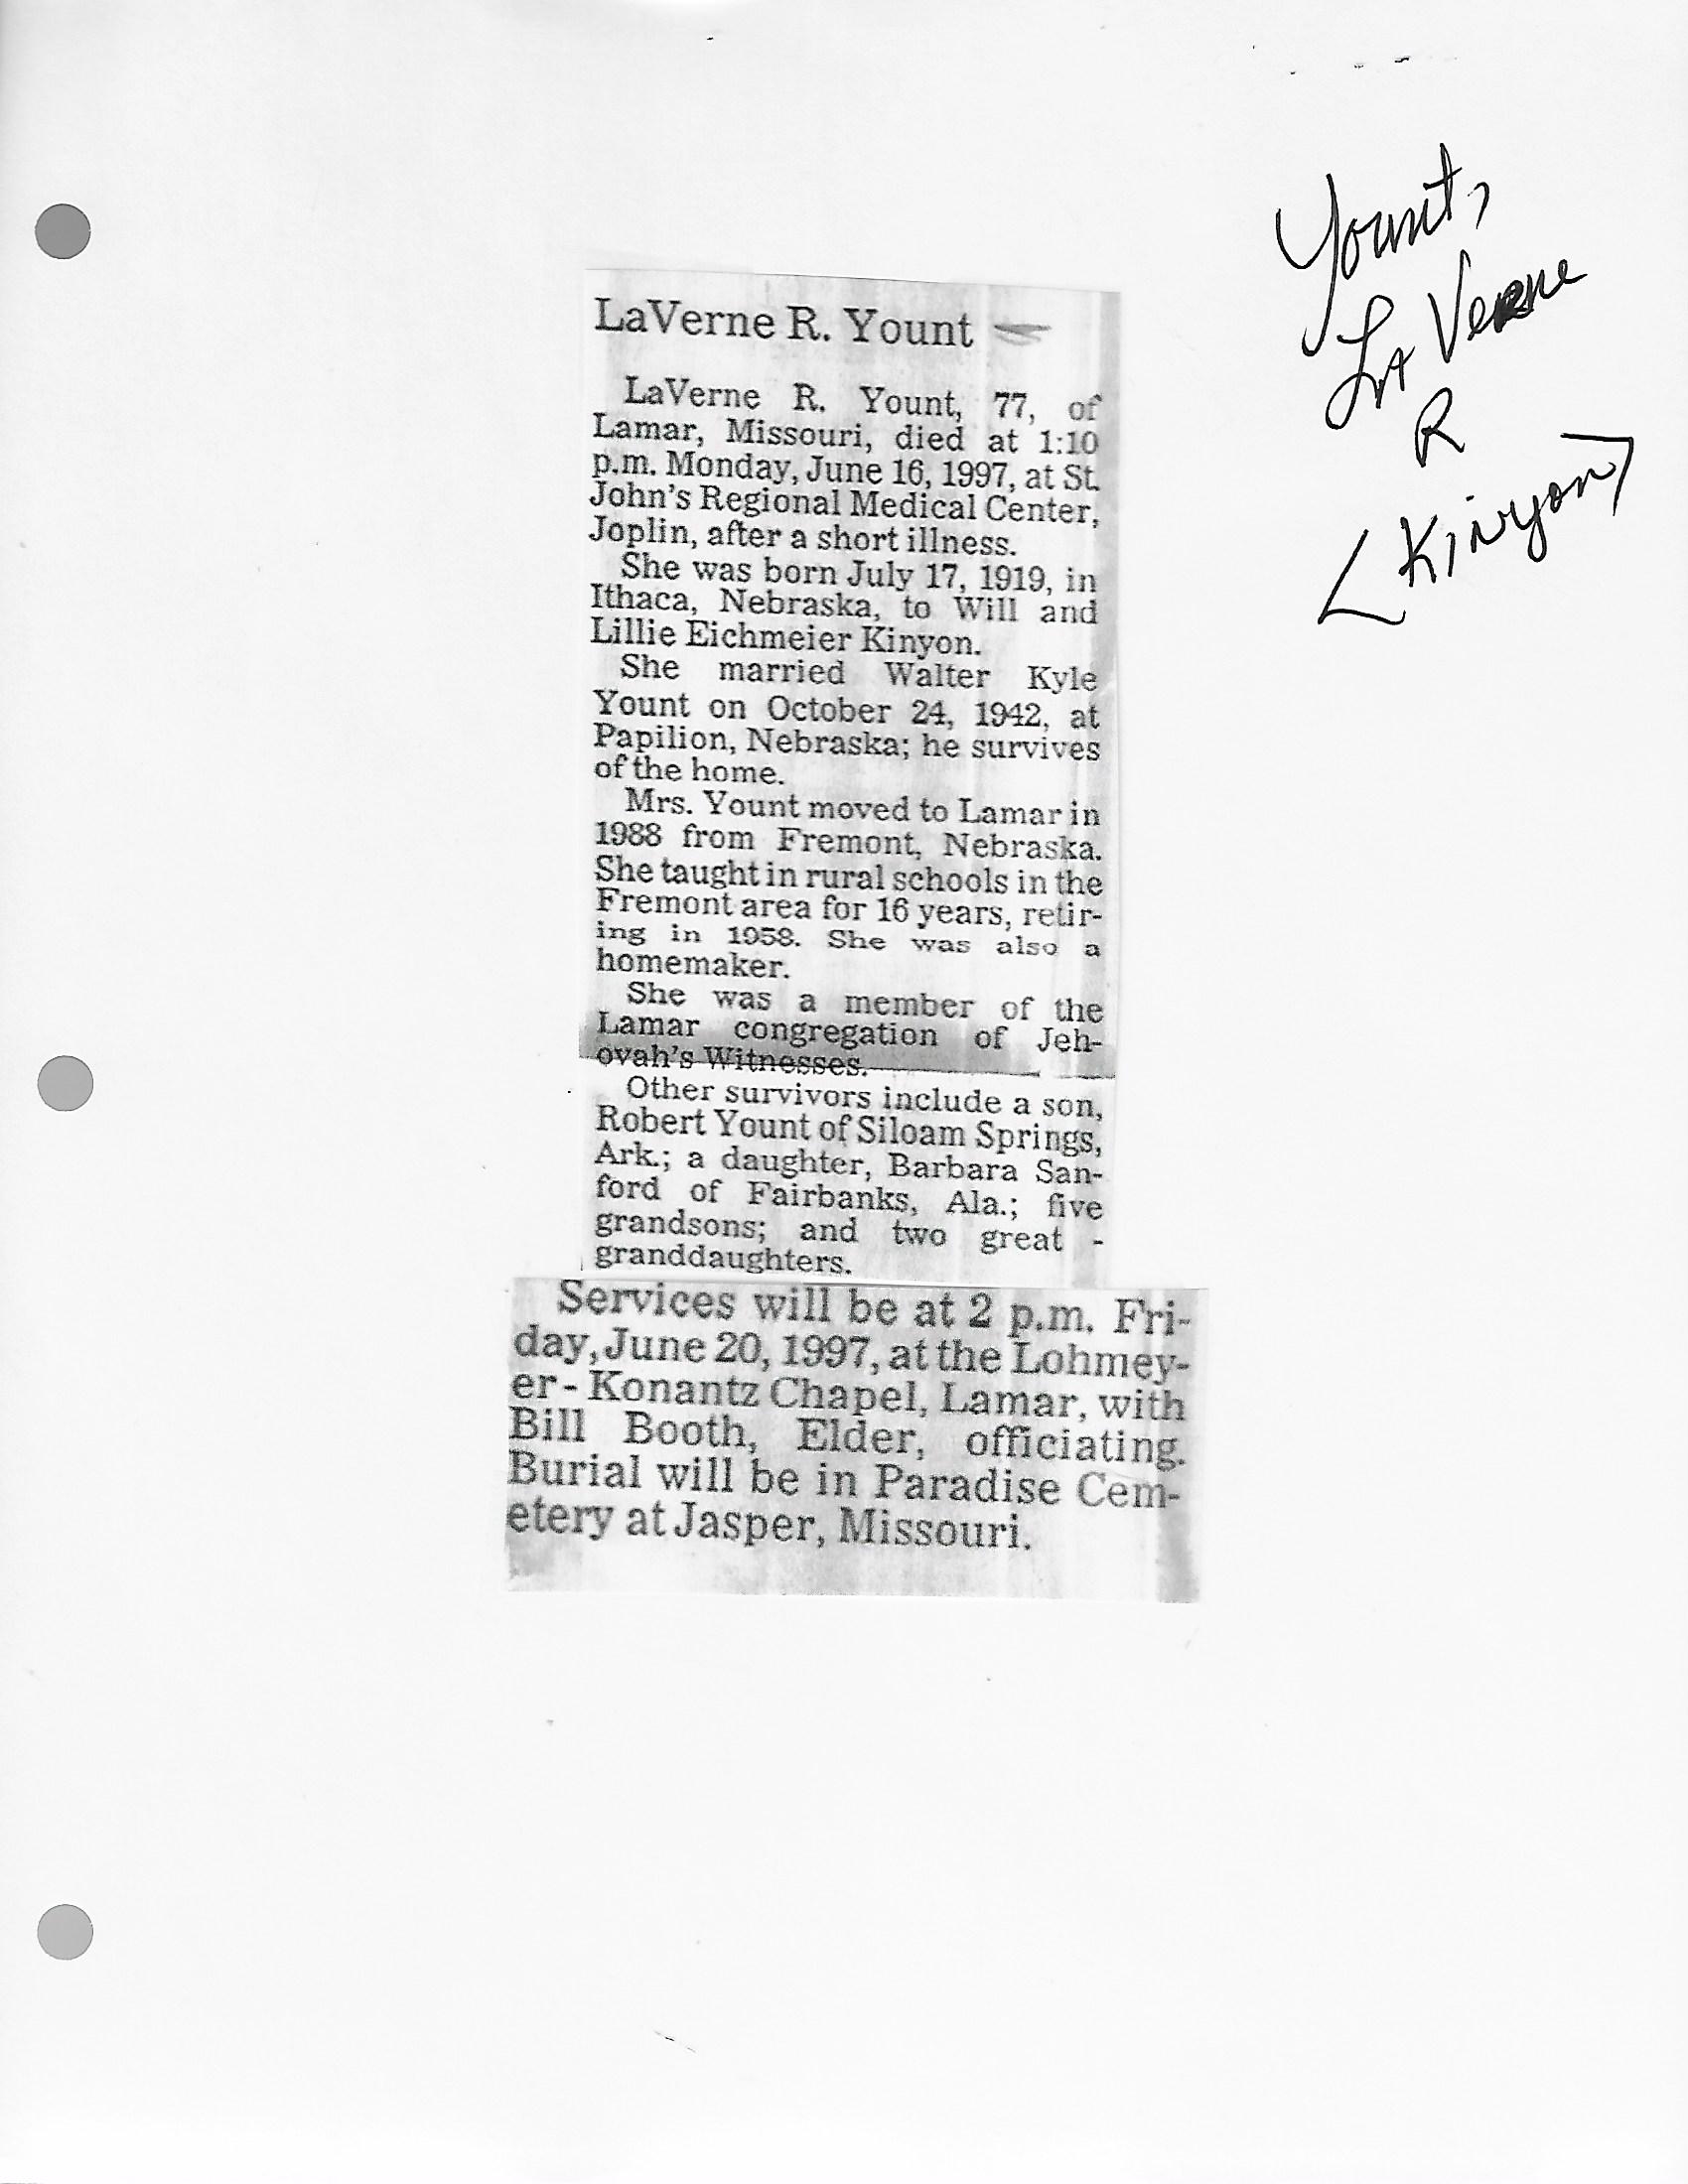 Yount,
LaVerne
R
<Kinyon>
LaVerne R. Yount
LaVerne R. Yount, 77, of
Lamar, Missouri, died at 1:10
p.m. Monday, June 16, 1997, at St.
John's Regional Medical Center,
Joplin, after a short illness.
She was born July 17, 1919, in
Ithaca, Nebraska, to Will and
Lillie Eichmeier Kinyon.
She married Walter Kyle
Yount on October 24, 1942, at
Papilion, Nebraska; he survives
of the home.
Mrs. Yount moved to Lamar in
1988 from Fremont, Nebraska.
She taught in rural schools in the
Fremont area for 16 years, retir-
ing in 1958. She was also a
homemaker.
She was a member of the
Lamar congregation of Jeh-
ovah's Witnesses.
Other survivors include a son,
Robert Yount of Siloam Springs,
Ark.; a daughter, Barbara San-
ford of Fairbanks, Ala.; five
grandsons; and two great -
granddaughters.
Services will be at 2 p.m. Fri-
day, June 20, 1997, at the Lohmey-
er - Konantz Chapel, Lamar, with
Bill Booth, Elder, officiating.
Burial will be in Paradise Cem-
etery at Jasper, Missouri.